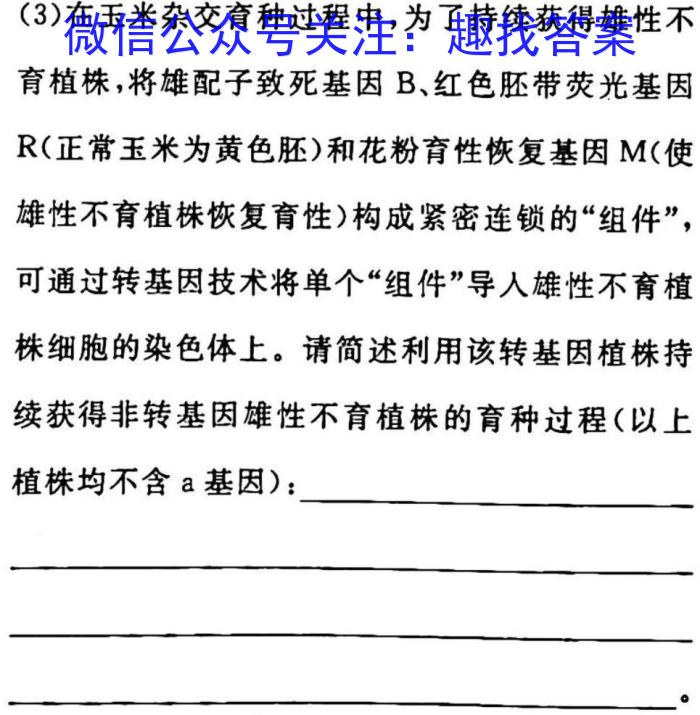 (3)在玉米杂交育种过程中,为了持续获得雄性不
微信公众号关注：趣找答案
育植株,将雄配子致死基因 B、红色胚带荧光基因
R(正常玉米为黄色胚)和花粉育性恢复基因 M(使
雄性不育植株恢复育性)构成紧密连锁的“组件”,
可通过转基因技术将单个“组件”导入雄性不育植
株细胞的染色体上。请简述利用该转基因植株持
续获得非转基因雄性不育植株的育种过程(以上
植株均不含 a 基因):
。